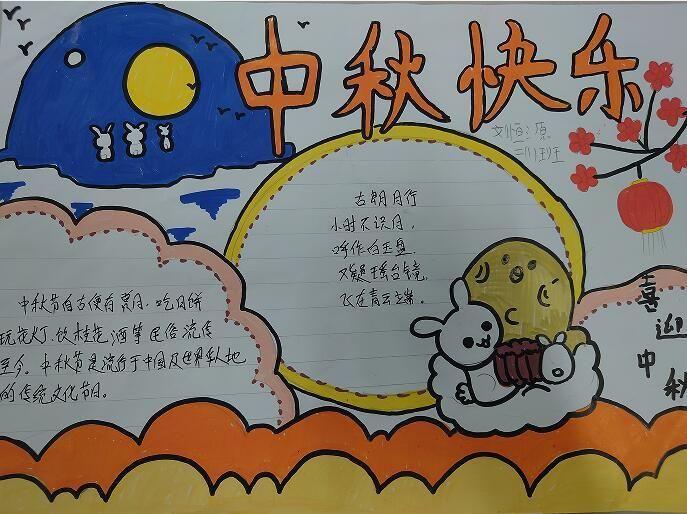 中秋快乐
古朗月行
小时不识月，
呼作白玉盘。
又疑瑶台镜，
飞在青云端。
中秋节自古便有赏月、吃月饼
玩花灯、饮桂花酒等民俗流传
至今。中秋节是流行于中国及世界华人地
的传统文化节日。
喜迎中秋